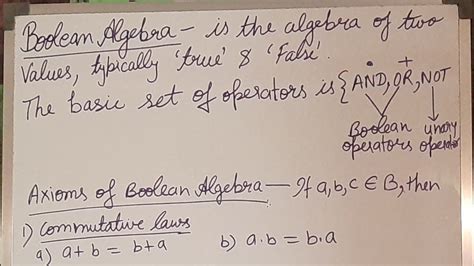 Boolean Algebra - is the algebra of two
values, typically 'true' & 'False'.
The basic set of operators is {AND, OR, NOT
. +
Boolean unary
operators operator
Axioms of Boolean Algebra - If a, b, c ∈ B, then
1) Commutative laws
a) a+b = b+a b) a.b = b.a